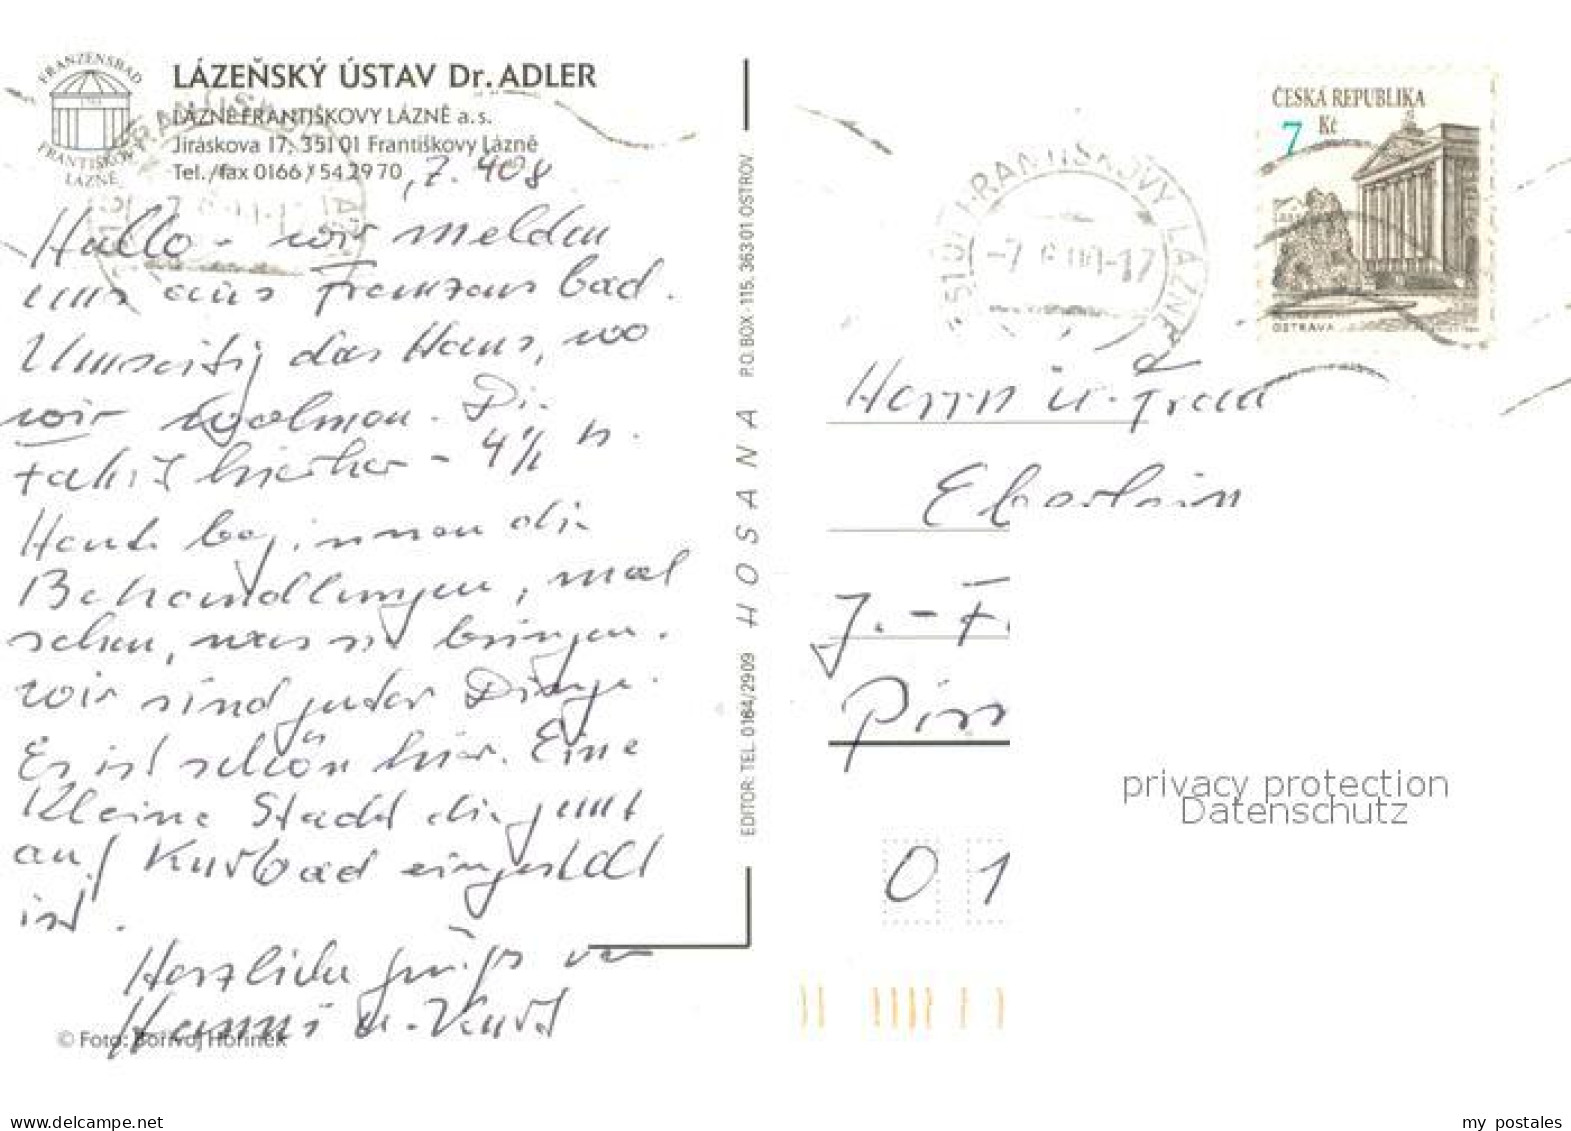 FRANZENSBAD
FRANTIŠKOVY
LÁZNĚ
LÁZEŇSKÝ ÚSTAV Dr. ADLER
LÁZNĚ FRANTIŠKOVY LÁZNĚ a.s.
Jiráskova 17, 351 01 Františkovy Lázně
Tel./fax 0166 / 54 29 70
Hallo - wir melden
uns aus Franzensbad.
Umseitig das Haus, wo
wir wohnen. Die
Fahrt hierher - 4 1/2 h.
Heute beginnen die
Behandlungen, mal
sehen, was sie bringen.
Wir sind guter Dinge.
Es ist schön hier. Eine
Kleine Stadt die ganz
auf Kurbad eingestellt
ist.
Herzliche Grüße von
Hanni u. Kurt
© Foto: Bořivoj Hořínek
EDITOR: TEL. 0164/2909 HOSANA P.O. BOX-115, 363 01 OSTROV
351 01 FRANTIŠKOVY LÁZNĚ
ČESKÁ REPUBLIKA
7 Kč
OSTRAVA
Herrn u. Frau
Eberlein
J.-F
Pir
0 1
privacy protection
Datenschutz
www.delcampe.net
my_postales